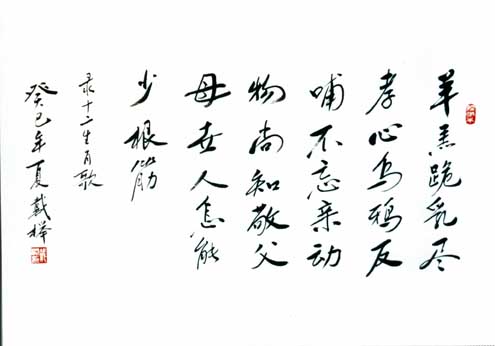 羊羔跪乳尽
孝心乌鸦反
哺不忘亲动
物尚知敬父
母世人怎能
少根筋
录十二生肖歌
癸巳年夏载桦